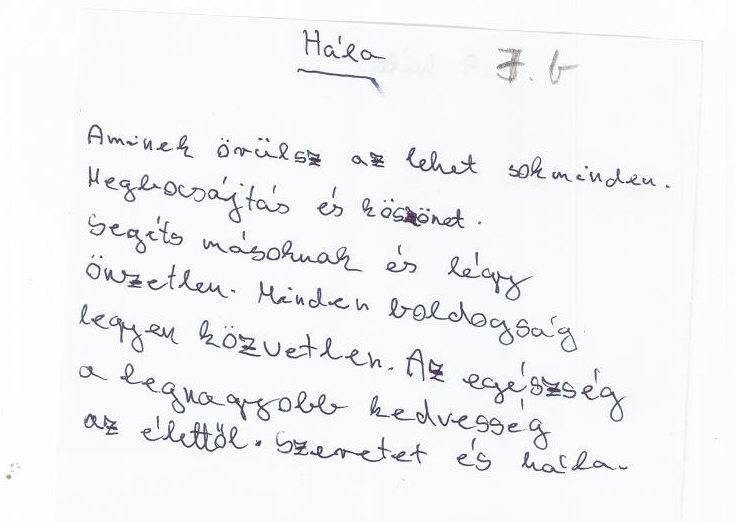 Hála
7.b
Aminek örülsz az lehet sokminden.
Megbocsájtás és köszönet.
Segíts másoknak és légy
önzetlen. Minden boldogság
legyen közvetlen. Az egészség
a legnagyobb kedvesség
az élettől. Szeretet és hála.